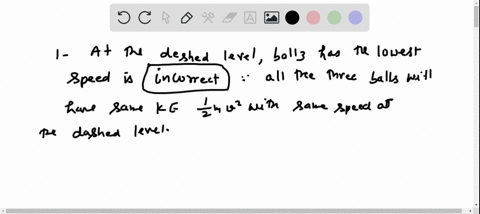 1- At the deshed level, ball3 has the lowest
speed is incorrect ∵ all the three balls will
have same KE 1/2 m v² with same speed at
the dashed level.